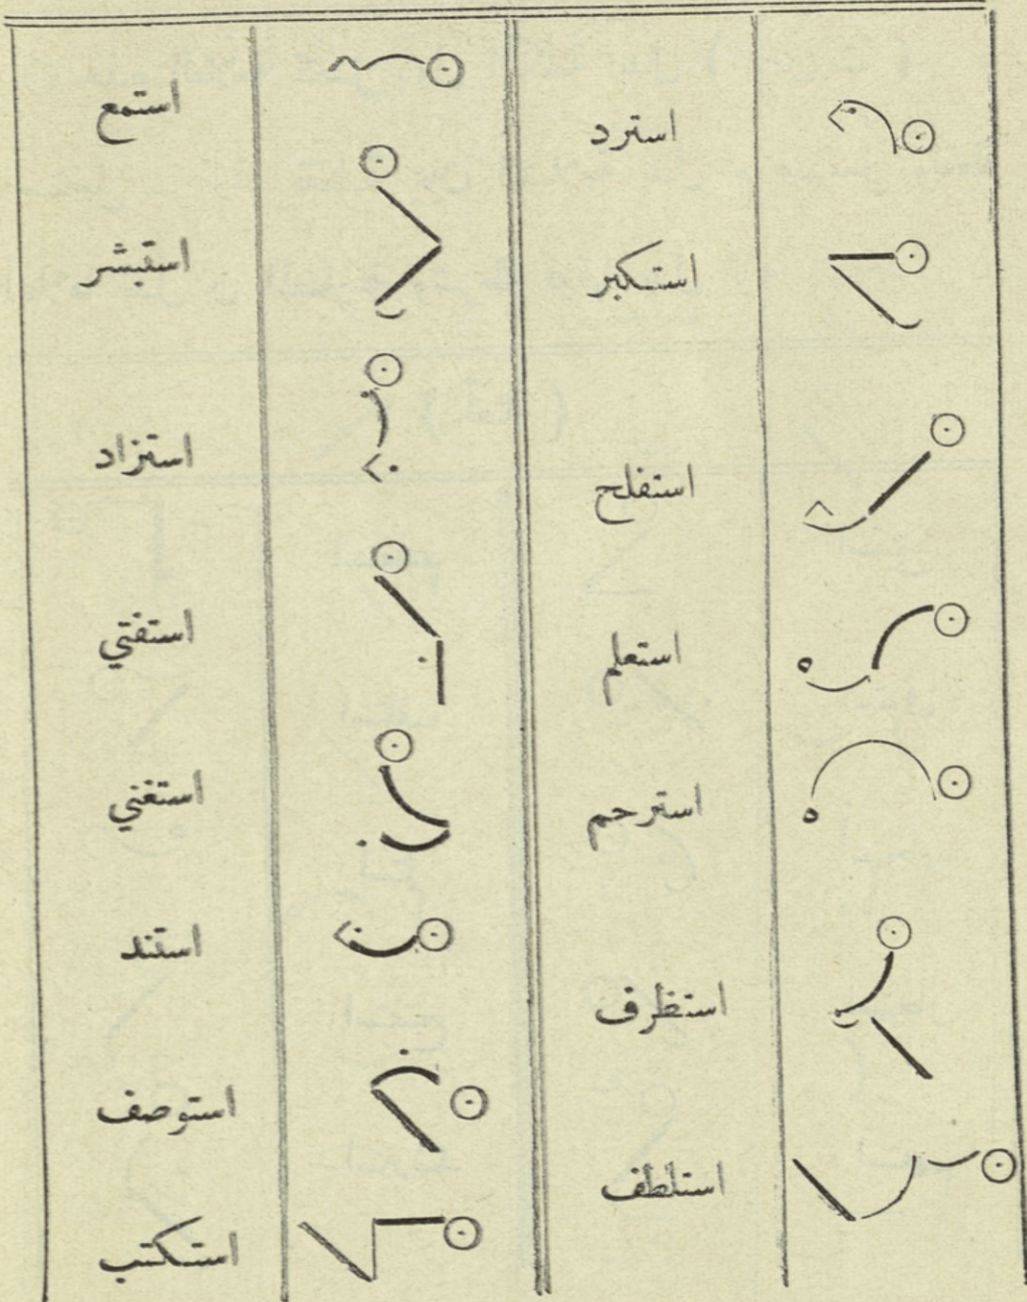 استرد
استكبر
استفلح
استعلم
استرحم
استظرف
استلطف
استمع
استبشر
استزاد
استفتي
استغني
استند
استوصف
استكتب